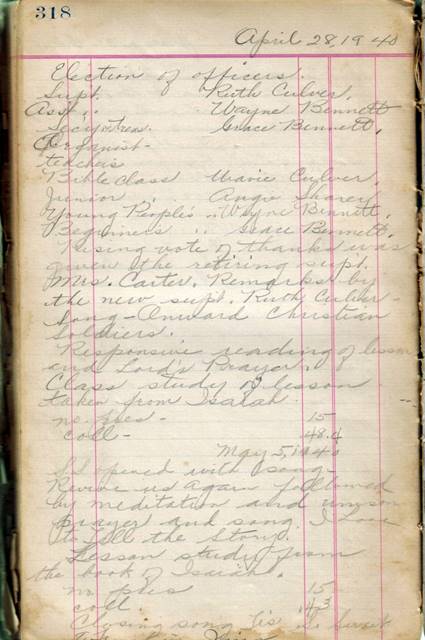 318
April 28, 1940
Election of officers.
Supt. Ruth Culver.
Asst. " Wayne Bennett
Secy & Treas. Grace Bennett.
Organist -
teachers
Bible Class Marie Culver.
Junior " Angie Sharey
Young People's " Wayne Bennett.
Beginners " Grace Bennett.
Rising vote of thanks was
given the retiring supt.
Mrs. Carter. Remarks by
the new supt. Ruth Culver -
Song - Onward Christian
Soldiers.
Responsive reading of lesson
and Lord's Prayer.
Class study of lesson
taken from Isaiah.
no. pres - 15
coll - .48
May 5, 1940
S.S. opened with song -
Revive us Again followed
by meditation and unison
prayer and song. I Love
to Tell the Story.
Lesson study from
the book of Isaiah.
no pres 15
coll 43
Closing song 'Tis so Sweet